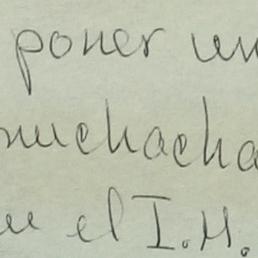 poner un
muchacha
en el I.H.